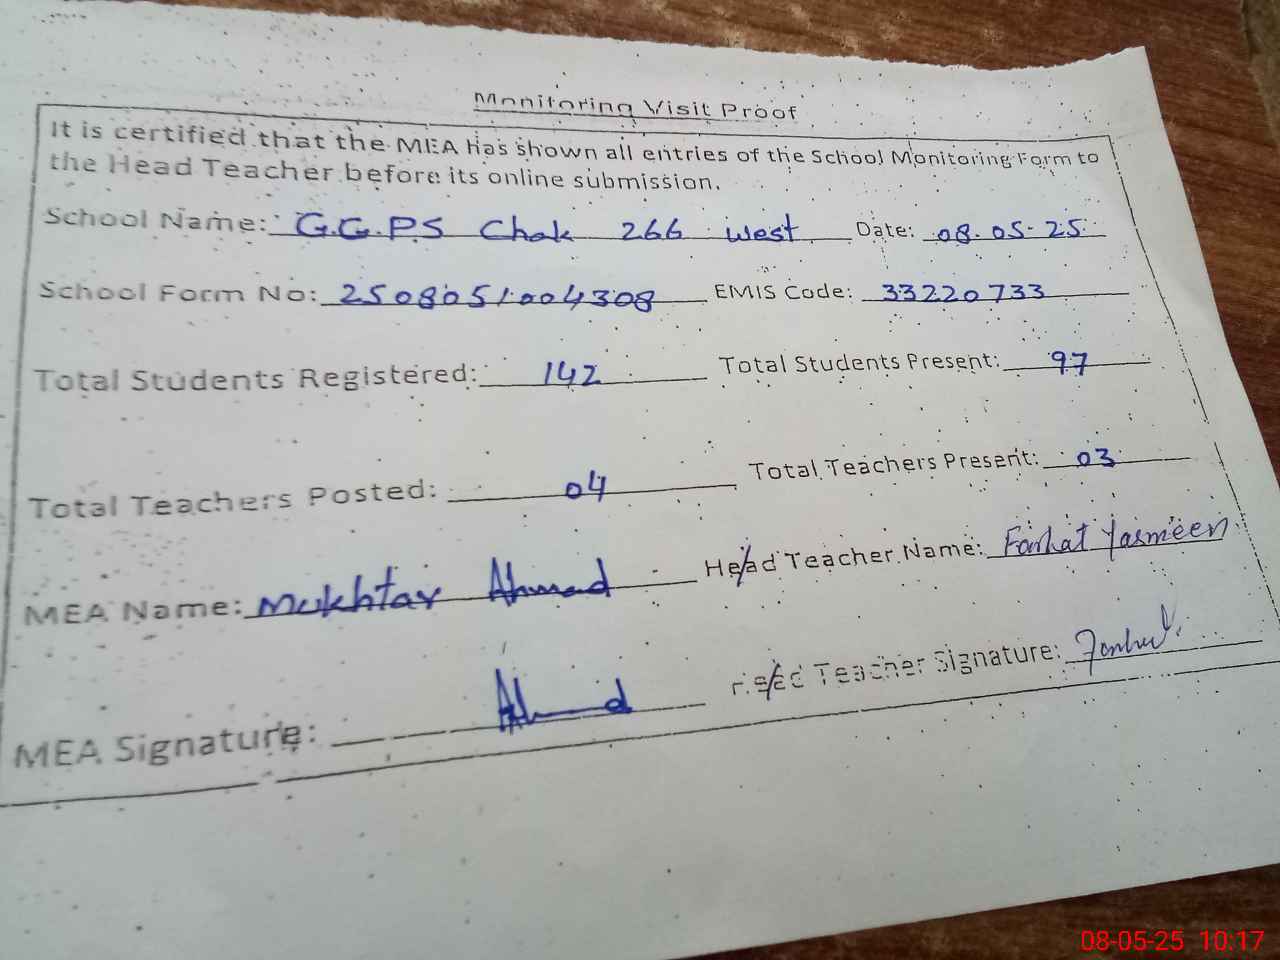 Monitoring Visit Proof
It is certified that the MEA has shown all entries of the School Monitoring Form to
the Head Teacher before its online submission.
School Name: G.G.P.S Chak 266 West Date: 08.05.25
School Form No: 2508051004308 EMIS Code: 33220733
Total Students Registered: 142 Total Students Present: 97
Total Teachers Posted: 04 Total Teachers Present: 03
MEA Name: Mukhtar Ahmad Head Teacher Name: Farhat Yasmeen
MEA Signature: Ahmad Head Teacher Signature:
08-05-25 10:17